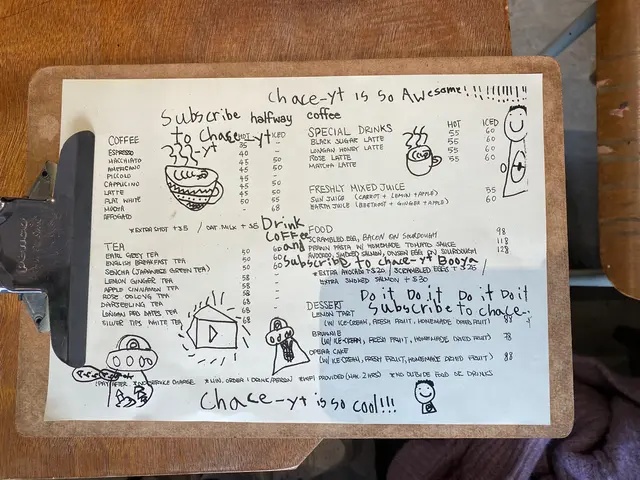 chace-yt is so Awesome!!!!!!!!!!
Subscribe halfway coffee
to chace-yt
-yt
COFFEE HOT ICED
ESPRESSO 35 -
MACCHIATO 40 -
AMERICANO 45 50
PICCOLO 45 -
CAPPUCCINO 45 50
LATTE 45 50
FLAT WHITE 45 50
MOCHA 50 55
AFFOGATO - 68
*EXTRA SHOT +35 / OAT MILK + 35
SPECIAL DRINKS HOT ICED
BLACK SUGAR LATTE 55 60
LONGAN HONEY LATTE 55 60
ROSE LATTE 55 60
MATCHA LATTE 55 60
FRESHLY MIXED JUICE
SUN JUICE (CARROT + LEMON + APPLE) 55
EARTH JUICE (BEETROOT + GINGER + APPLE) 60
Drink
Coffee
and
subscribe to chace-yt Booya
TEA
EARL GREY TEA 50 60
ENGLISH BREAKFAST TEA 50 60
SENCHA (JAPANESE GREEN TEA) 50 60
LEMON GINGER TEA 58 -
APPLE CINNAMON TEA 58 -
ROSE OOLONG TEA 58 -
DARJEELING TEA 68 -
LONGAN RED DATES TEA 68 -
SILVER TIPS WHITE TEA 68 -
FOOD
SCRAMBLED EGG, BACON ON SOURDOUGH 98
PRAWN PASTA W/ HOMEMADE TOMATO SAUCE 118
AVOCADO, SMOKED SALMON, ONSEN EGG ON SOURDOUGH 128
*EXTRA AVOCADO +$20 / SCRAMBLED EGGS +$25 /
EXTRA SMOKED SALMON +$30
Do it Do it Do it Do it
Subscribe to chace-yt
DESSERT
LEMON TART 88
(W/ ICE-CREAM, FRESH FRUIT, HOMEMADE DRIED FRUIT)
BROWNIE 78
(W/ ICE-CREAM, FRESH FRUIT, HOMEMADE DRIED FRUIT)
OPERA CAKE
(W/ ICE-CREAM, FRESH FRUIT, HOMEMADE DRIED FRUIT) 88
*PAY AFTER *NO SERVICE CHARGE *MIN. ORDER 1 DRINK/PERSON *WIFI PROVIDED (MAX. 2 HRS) *NO OUTSIDE FOOD OR DRINKS
Chace-yt is so cool!!!